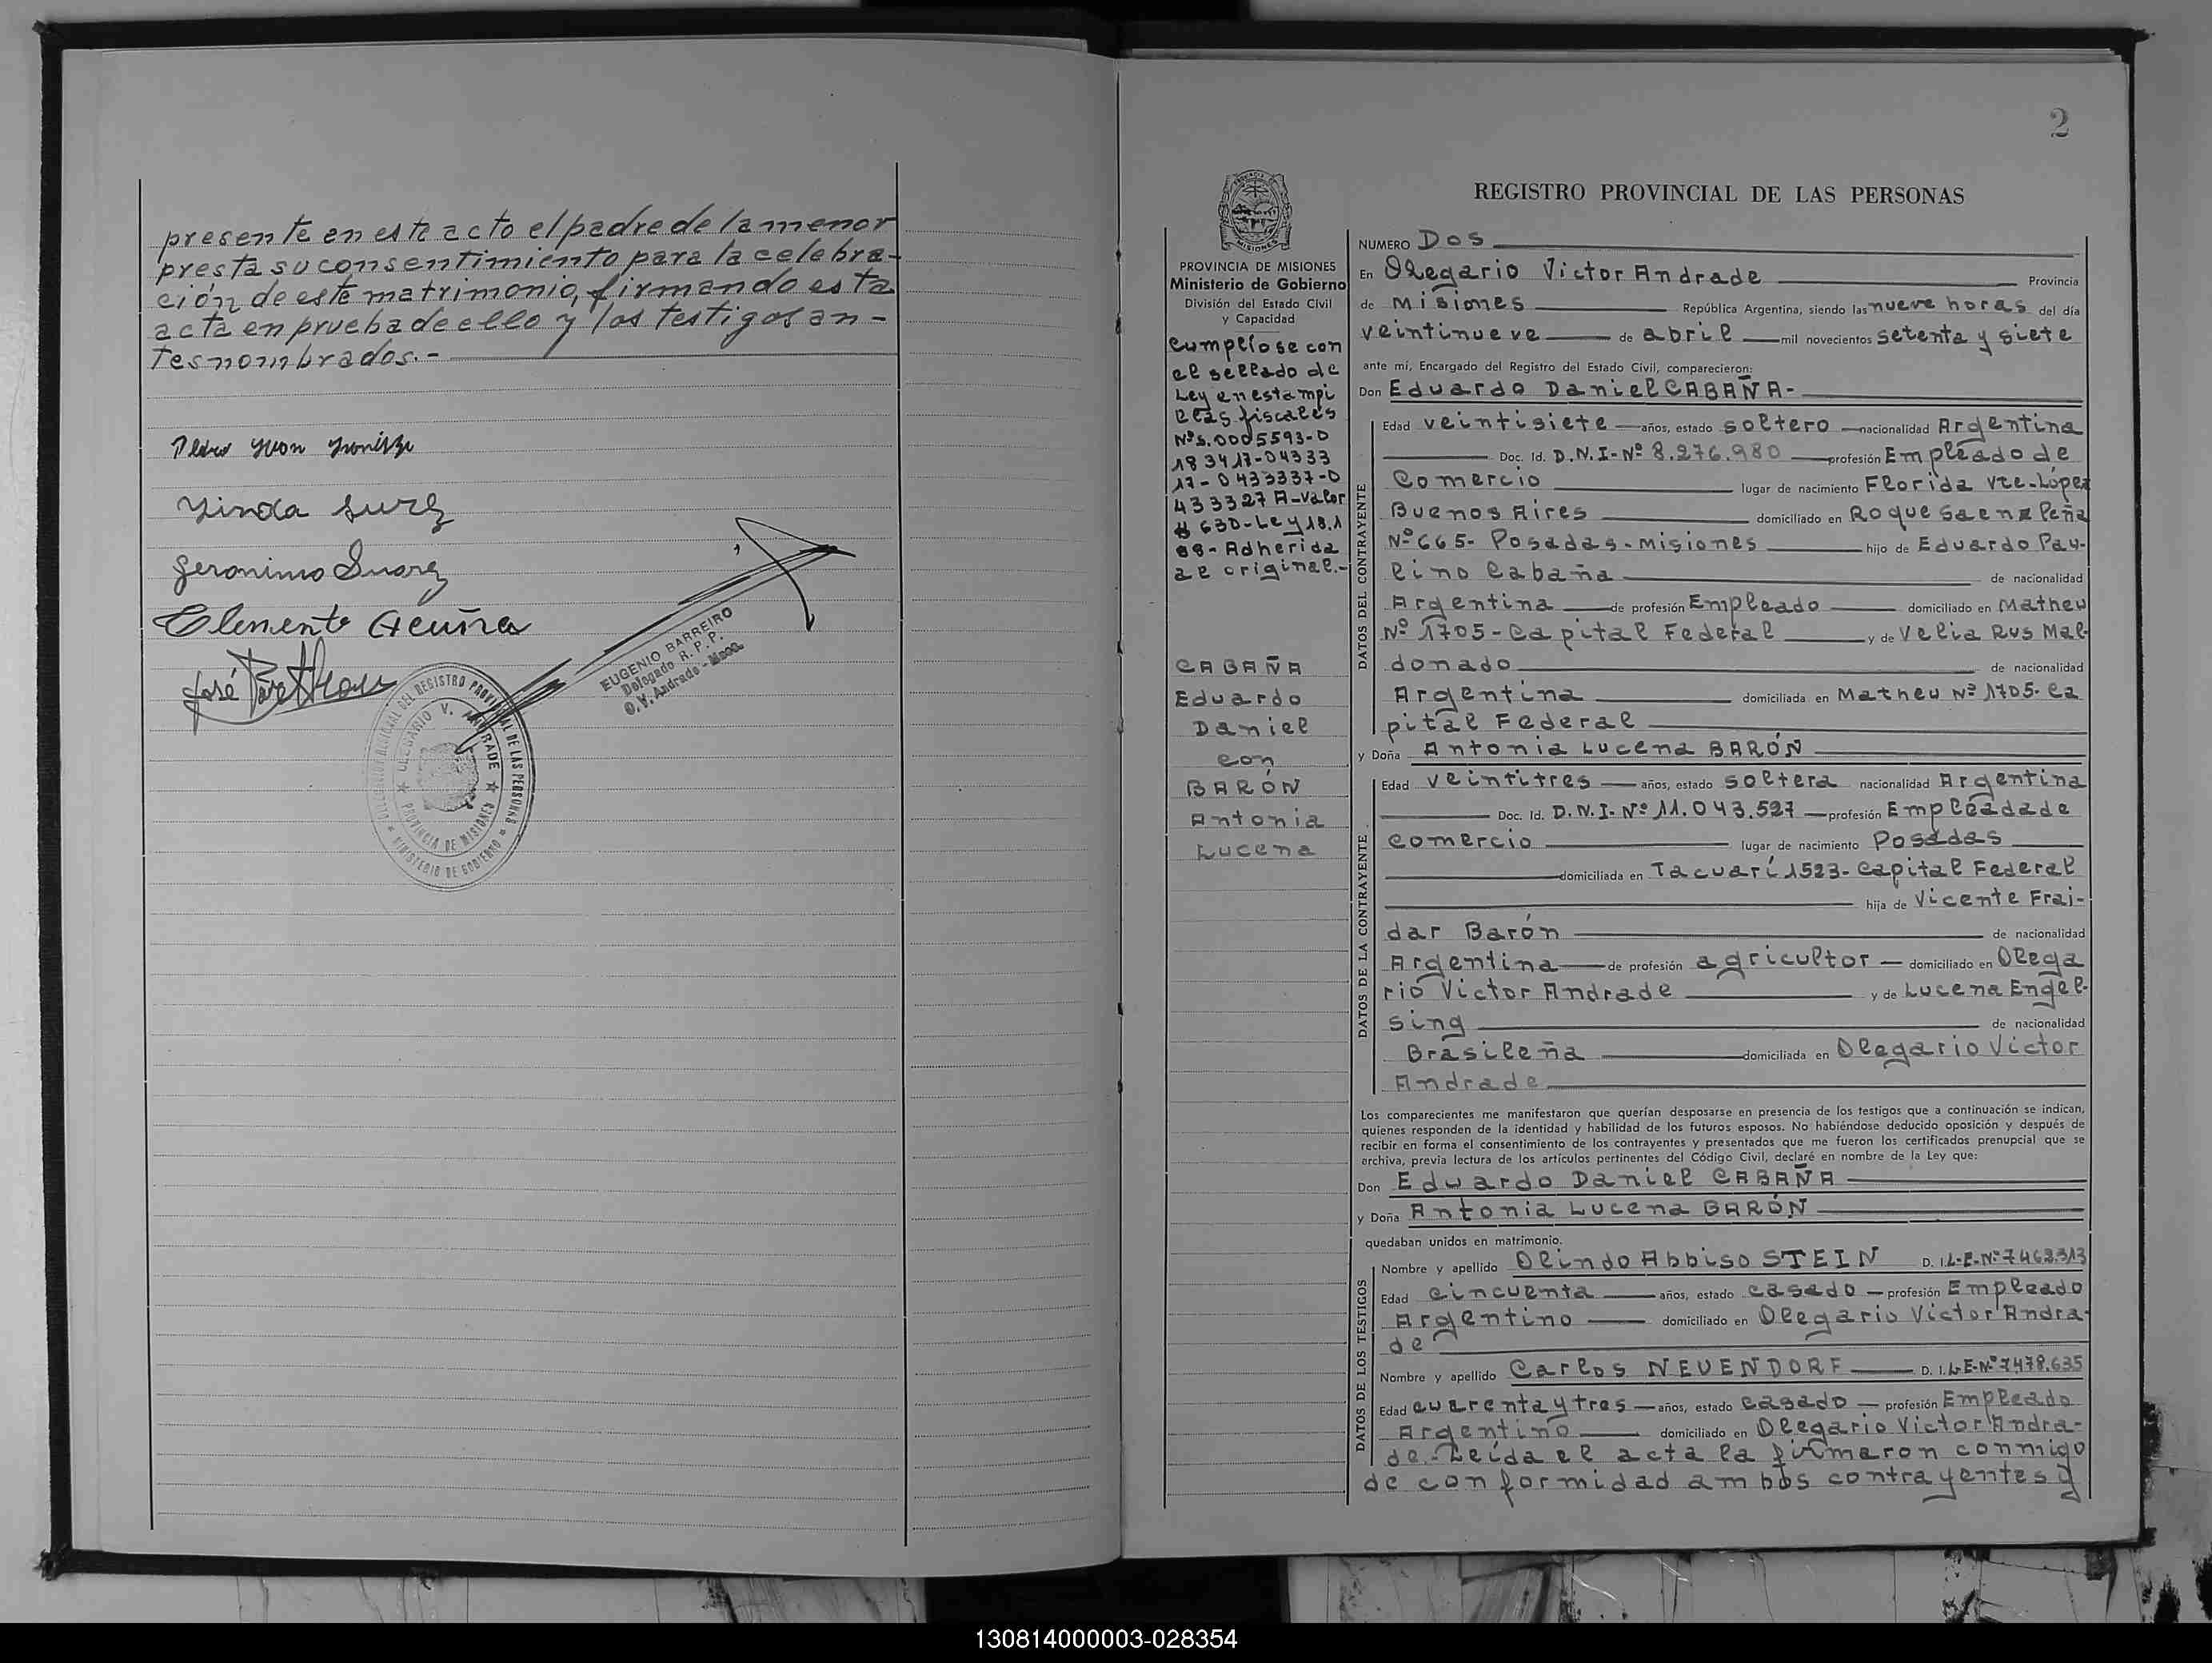 presente en este acto el padre de la menor
presta su consentimiento para la celebra-
ción de este matrimonio, firmando esta
acta en prueba de ello y los testigos an-
tes nombrados.-
Pedro Yvon
Geronimo Suarez
Clemente Acuña
José
EUGENIO BARREIRO
Delegado R. P. P.
O. V. Andrade - Mnes.
DEL REGISTRO PROVINCIAL DE LAS PERSONAS
OLEGARIO V. ANDRADE
PROVINCIA DE MISIONES
MINISTERIO DE GOBIERNO
2
MISIONES
PROVINCIA DE MISIONES
Ministerio de Gobierno
División del Estado Civil
y Capacidad
Cumplose con
el sellado de
Ley en estampi
llas fiscales
Nºs. 0005593-0
183417-04333
17-0433337-0
433327 A-Valor
$ 630-Ley 18.1
88-Adherida
al original.-
CABAÑA
Eduardo
Daniel
con
BARÓN
Antonia
Lucena
REGISTRO PROVINCIAL DE LAS PERSONAS
NUMERO Dos
En Olegario Victor Andrade Provincia
de Misiones República Argentina, siendo las nueve horas del día
veintinueve de abril mil novecientos setenta y siete
ante mí, Encargado del Registro del Estado Civil, comparecieron:
Don Eduardo Daniel CABAÑA-
DATOS DEL CONTRAYENTE
Edad veintisiete años, estado soltero nacionalidad Argentina
Doc. Id. D.N.I-Nº 8.276.980 profesión Empleado de
Comercio lugar de nacimiento Florida Vte-López
Buenos Aires domiciliado en Roque Saenz Peña
Nº 665- Posadas-Misiones hijo de Eduardo Pau-
lino Cabaña de nacionalidad
Argentina de profesión Empleado domiciliado en Matheu
Nº 1705-Capital Federal y de Velia Rus Mal-
donado de nacionalidad
Argentina domiciliada en Matheu Nº 1705-Ca
pital Federal
y Doña Antonia Lucena BARÓN
DATOS DE LA CONTRAYENTE
Edad veintitres años, estado soltera nacionalidad Argentina
Doc. Id. D.N.I-Nº 11.043.527 profesión Empleada de
comercio lugar de nacimiento Posadas
domiciliada en Tacuarí 1523-Capital Federal
hija de Vicente Frai-
dar Barón de nacionalidad
Argentina de profesión agricultor domiciliado en Olega
rio Victor Andrade y de Lucena Engel-
sing de nacionalidad
Brasileña domiciliada en Olegario Victor
Andrade
Los comparecientes me manifestaron que querían desposarse en presencia de los testigos que a continuación se indican,
quienes responden de la identidad y habilidad de los futuros esposos. No habiéndose deducido oposición y después de
recibir en forma el consentimiento de los contrayentes y presentados que me fueron los certificados prenupcial que se
archiva, previa lectura de los artículos pertinentes del Código Civil, declaré en nombre de la Ley que:
Don Eduardo Daniel CABAÑA
y Doña Antonia Lucena BARÓN
quedaban unidos en matrimonio.
DATOS DE LOS TESTIGOS
Nombre y apellido Olindo Abbiso STEIN D. I.L-E-Nº 7463.313
Edad cincuenta años, estado casado profesión Empleado
Argentino domiciliado en Olegario Victor Andra-
de
Nombre y apellido Carlos NEUENDORF D. I.L-E-Nº 7.478.635
Edad cuarenta y tres años, estado casado profesión Empleado
Argentino domiciliado en Olegario Victor Andra-
de.-Leída el acta la firmaron conmigo
de conformidad ambos contrayentes y
130814000003-028354